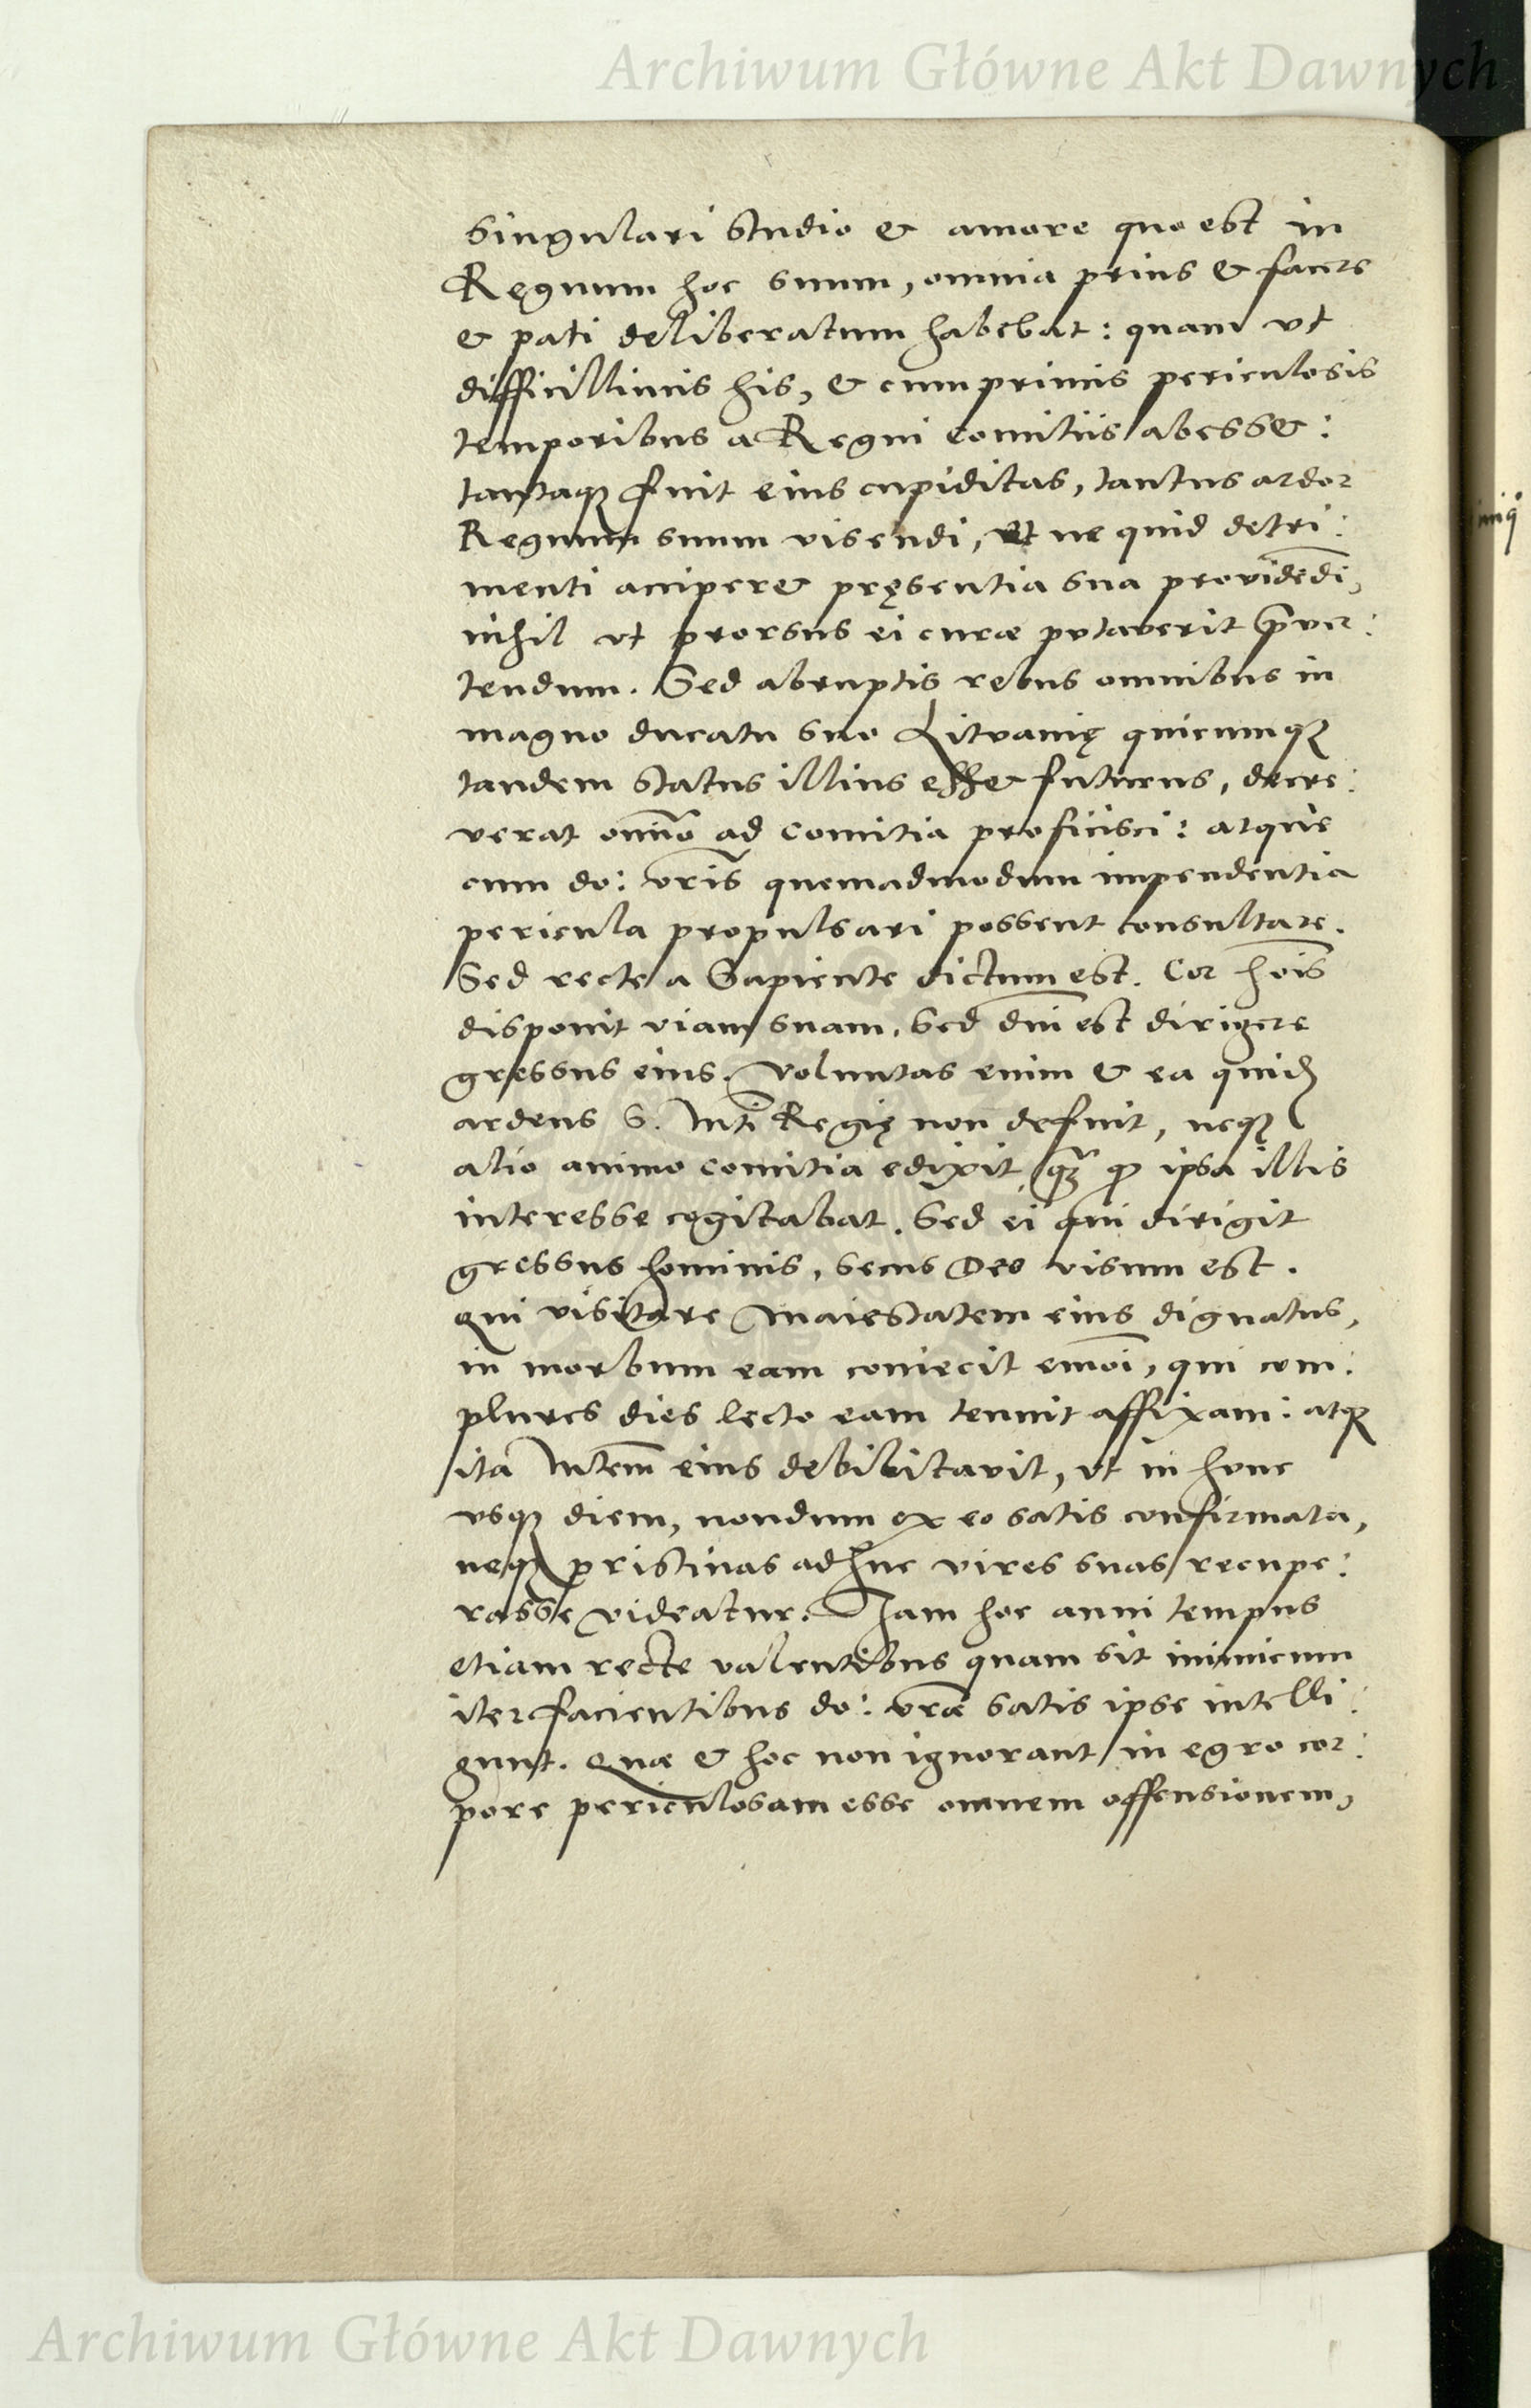 Archiwum Główne Akt Dawnych
singulari studio & amore quo est in
Regnum hoc suum, omnia prius & facere
& pati deliberatum habebat: quam vt
difficillimis his, & cumprimis periculosis
temporibus a Regni Comitiis abesset:
tantaqꝫ fuit eius cupiditas, tantus ardor
Regnum suum visendi, et ne quid detri:
menti acciperet pręsentia sua providēdi,
nihil vt prorsus ei curæ putaverit p̄ver:
tendum. Sed abruptis rebus omnibus in
magno ducatu suo Litvanię quicumqꝫ
tandem status illius esset futurus, decre:
verat om̄io ad Comitia proficisci: atque
cum do: vr̄is quemadmodum impendentia
pericula propulsari possent consultare.
Sed recte a Sapiente dictum est. Cor hōis
disponit viam suam, sed dn̄i est dirigere
gressus eius. Voluntas enim & ea quidē
ardens S. Mti Regię non defuit, neqꝫ
alio animo comitia edixit, qꝫ̄ ꝙ ipsa illis
interesse cogitabat. Sed ei qui dirigit
gressus hominis, secus Deo visum est.
qui visitare Maiestatem eius dignatus,
in morbum eam coniecit em̄oi, qui com:
plures dies lecto eam tenuit affixam: atqꝫ
ita Mtem̄ eius debilitavit, vt in hunc
vsqꝫ diem, nondum ex eo satis confirmata,
neqꝫ pristinas adhuc vires suas recupe:
rasse videatur. Iam hoc anni tempus
etiam recte valentibus quam sit inimicum
iter facientibus do: vr̄æ satis ipse intelli:
gunt. Quæ & hoc non ignorant in egro cor:
pore periculosam esse omnem offensionem,
Archiwum Główne Akt Dawnych